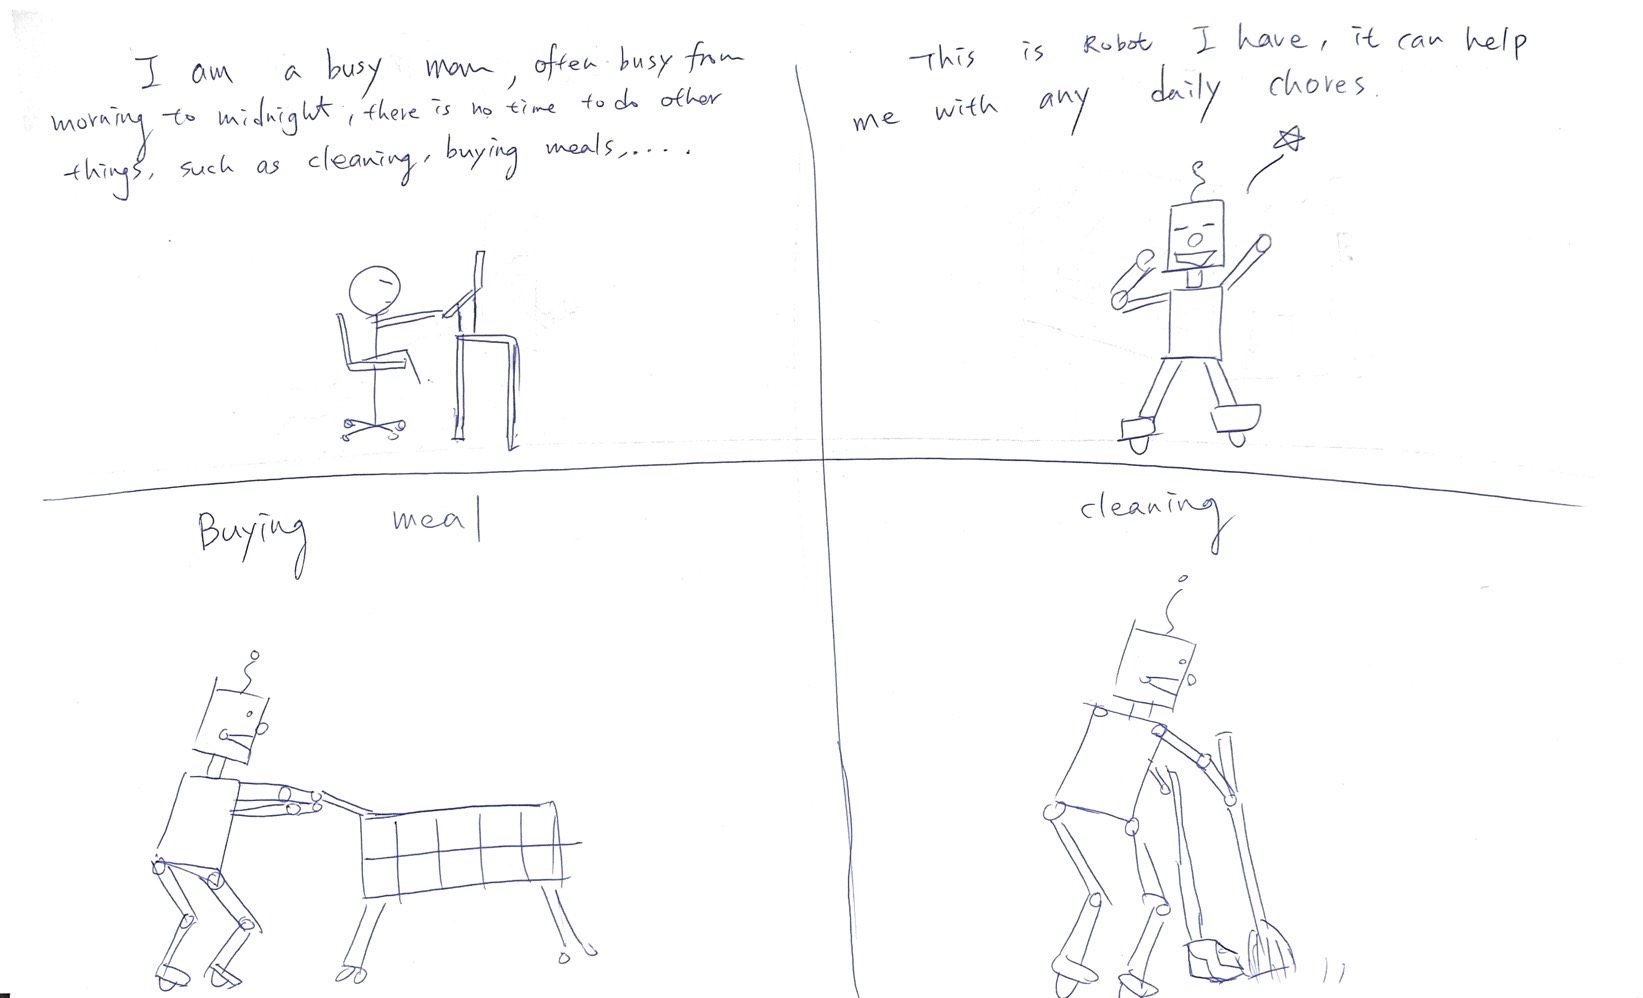 I am a busy man, often busy from
morning to midnight, there is no time to do other
things, such as cleaning, buying meals,....
This is Robot I have, it can help
me with any daily chores.
Buying meal
cleaning